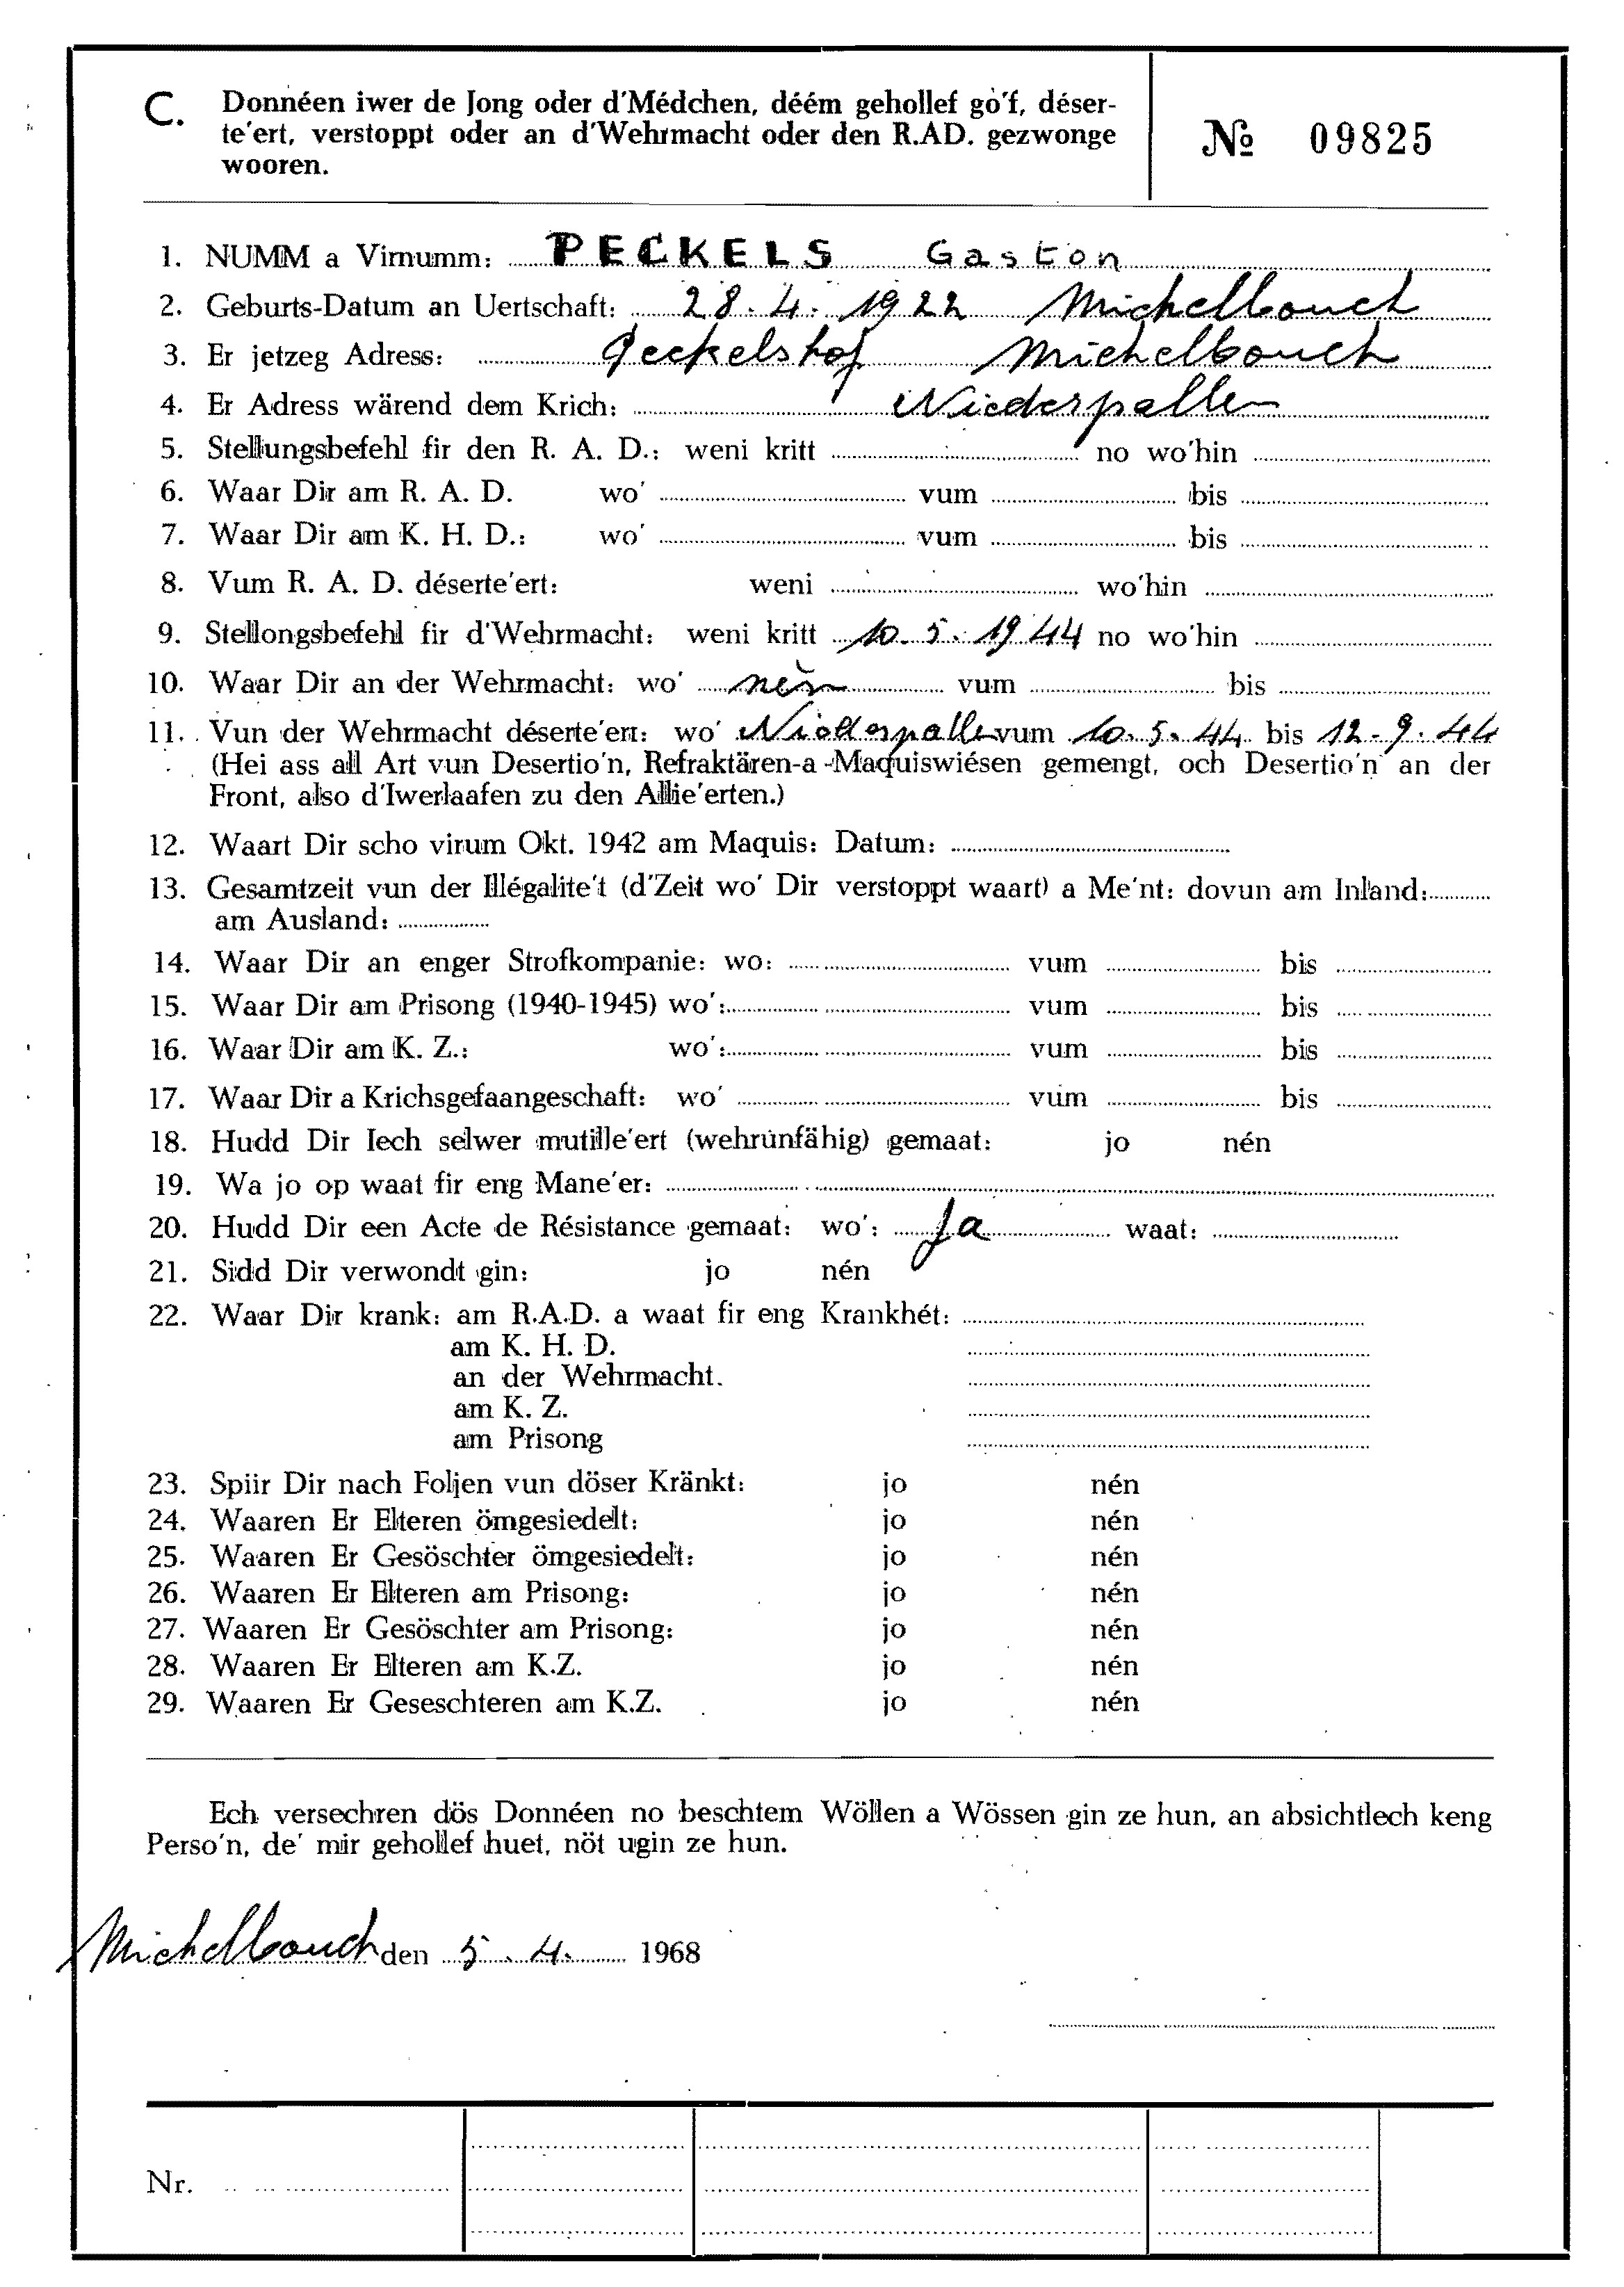 C. Donnéen iwer de Jong oder d'Médchen, déém gehollef go'f, déser-
te'ert, verstoppt oder an d'Wehrmacht oder den R.AD. gezwonge
wooren.
№ 09825
1. NUMM a Virnumm: PECKELS Gaston
2. Geburts-Datum an Uertschaft: 28.4.1922 Michelbouch
3. Er jetzeg Adress: Peckelshof Michelbouch
4. Er Adress wärend dem Krich: Niederpallen
5. Stellungsbefehl fir den R. A. D.: weni kritt no wo'hin
6. Waar Dir am R. A. D. wo' vum bis
7. Waar Dir am K. H. D.: wo' vum bis
8. Vum R. A. D. déserte'ert: weni wo'hin
9. Stellongsbefehl fir d'Wehrmacht: weni kritt 10.5.1944 no wo'hin
10. Waar Dir an der Wehrmacht: wo' nèn vum bis
11. Vun der Wehrmacht déserte'ert: wo' Niederpallen vum 10.5.44 bis 12.9.44
(Hei ass all Art vun Desertio'n, Refraktären-a -Maquiswiésen gemengt, och Desertio'n an der
Front, also d'Iwerlaafen zu den Allie'erten.)
12. Waart Dir scho virum Okt. 1942 am Maquis: Datum:
13. Gesamtzeit vun der Illégalite't (d'Zeit wo' Dir verstoppt waart) a Me'nt: dovun am Inland:
am Ausland:
14. Waar Dir an enger Strofkompanie: wo: vum bis
15. Waar Dir am Prisong (1940-1945) wo': vum bis
16. Waar Dir am K. Z.: wo': vum bis
17. Waar Dir a Krichsgefaangeschaft: wo' vum bis
18. Hudd Dir Iech selwer mutille'ert (wehrunfähig) gemaat: jo nén
19. Wa jo op waat fir eng Mane'er:
20. Hudd Dir een Acte de Résistance gemaat: wo': Ja waat:
21. Sidd Dir verwondt gin: jo nén
22. Waar Dir krank: am R.A.D. a waat fir eng Krankhét:
am K. H. D.
an der Wehrmacht.
am K. Z.
am Prisong
23. Spiir Dir nach Foljen vun döser Kränkt: jo nén
24. Waaren Er Elteren ömgesiedelt: jo nén
25. Waaren Er Gesöschter ömgesiedelt: jo nén
26. Waaren Er Elteren am Prisong: jo nén
27. Waaren Er Gesöschter am Prisong: jo nén
28. Waaren Er Elteren am K.Z. jo nén
29. Waaren Er Geseschteren am K.Z. jo nén
Ech versechren dös Donnéen no beschtem Wöllen a Wössen gin ze hun, an absichtlech keng
Perso'n, de' mir gehollef huet, nöt ugin ze hun.
Michelbouch den 5.4. 1968
Nr.